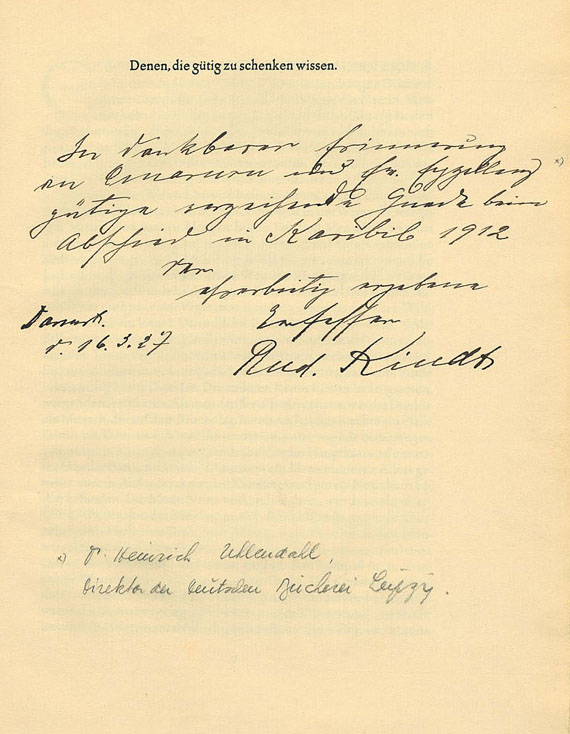 Denen, die gütig zu schenken wissen.
In dankbarer Erinnerung
an Omaruru und Ew. Exzellenz *)
gütige verzeihende Gnade beim
Abschied in Karibib 1912
der
ehrerbietig ergebene
Verfasser
Rud. Kindt
d. 16.3.27
*) Dr Heinrich Uhlendahl,
Direktor der Deutschen Bücherei Leipzig.